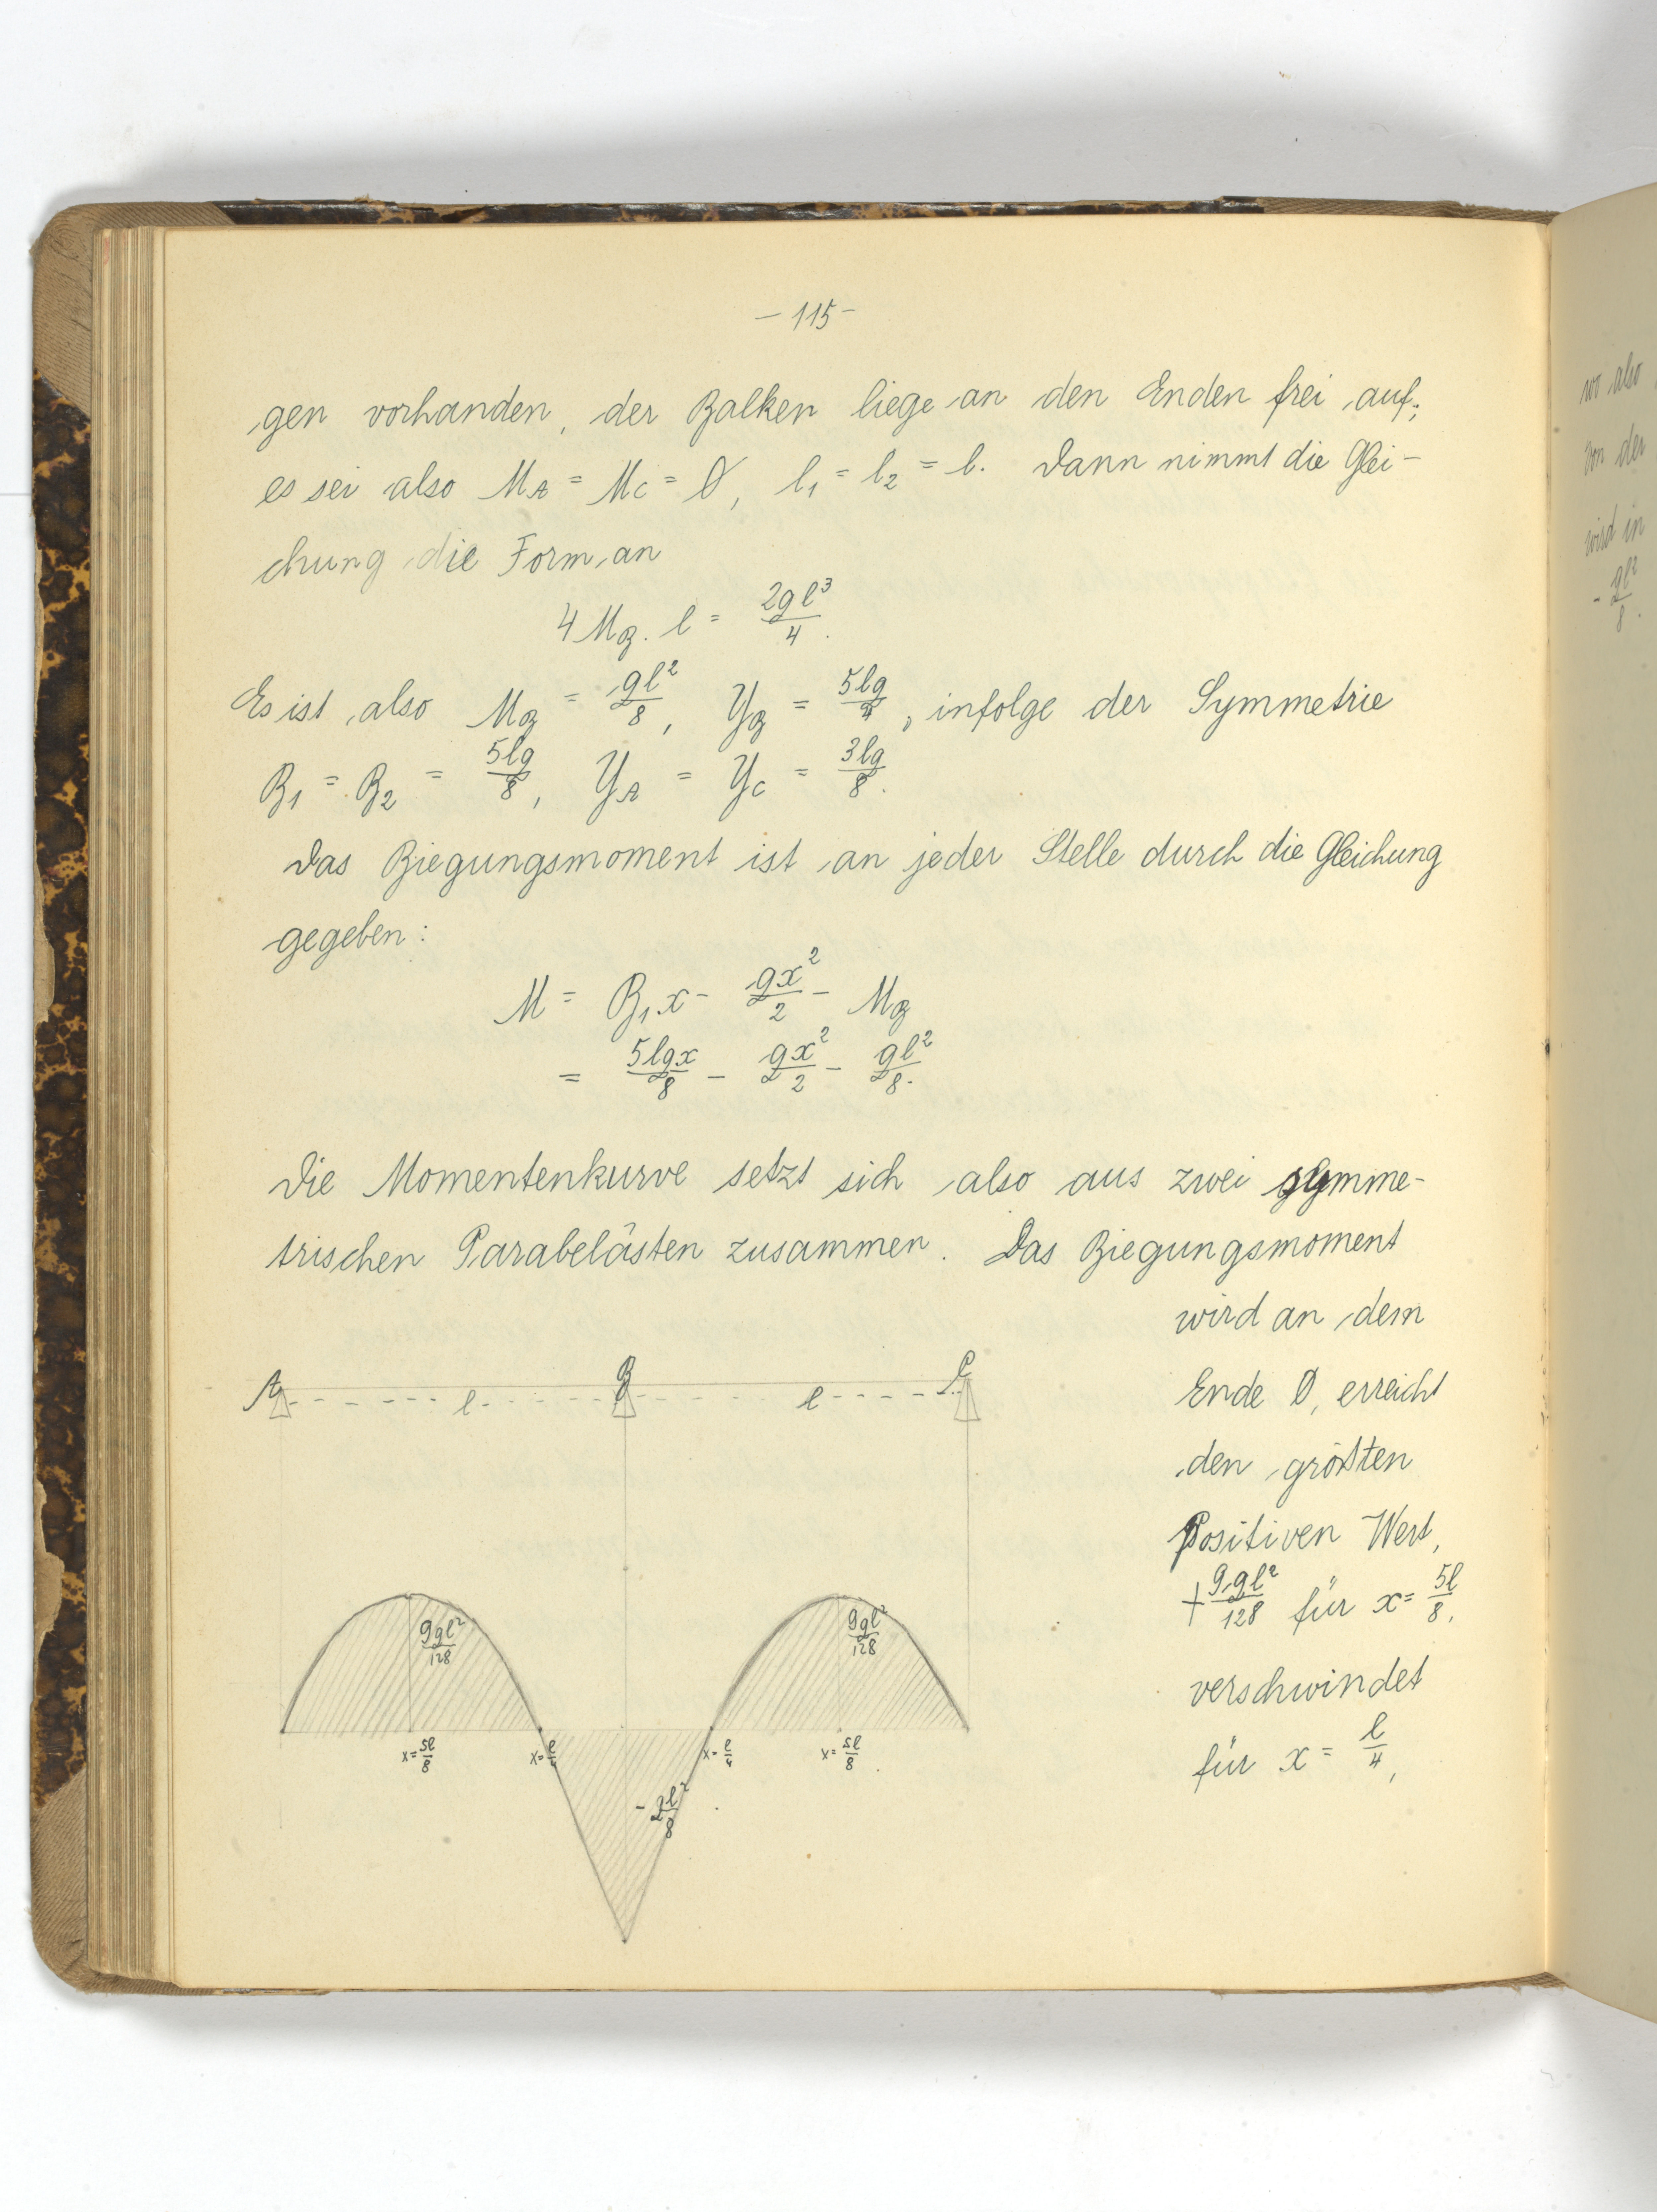 - 115 -
gen vorhanden, der Balken liege an den Enden frei auf;
es sei also M_A = M_C = 0, l_1 = l_2 = l. Dann nimmt die Glei-
chung die Form an
4 M_B . l = 2gl³/4.
Es ist also M_B = gl²/8, Y_B = 5lg/4, infolge der Symmetrie
B_1 = B_2 = 5lg/8, Y_A = Y_C = 3lg/8.
Das Biegungsmoment ist an jeder Stelle durch die Gleichung
gegeben:
M = B_1 x - gx²/2 - M_B
= 5lgx/8 - gx²/2 - gl²/8.
Die Momentenkurve setzt sich also aus zwei symme-
trischen Parabelästen zusammen. Das Biegungsmoment
wird an dem
Ende 0, erreicht
den größten
Positiven Wert,
+ 9gl²/128 für x = 5l/8,
verschwindet
für x = l/4,
A l B l C
9gl²/128 9gl²/128
x = 5l/8 x = l/4 x = l/4 x = 5l/8.
- gl²/8
wo also
von der
wird in
- gl²/8.